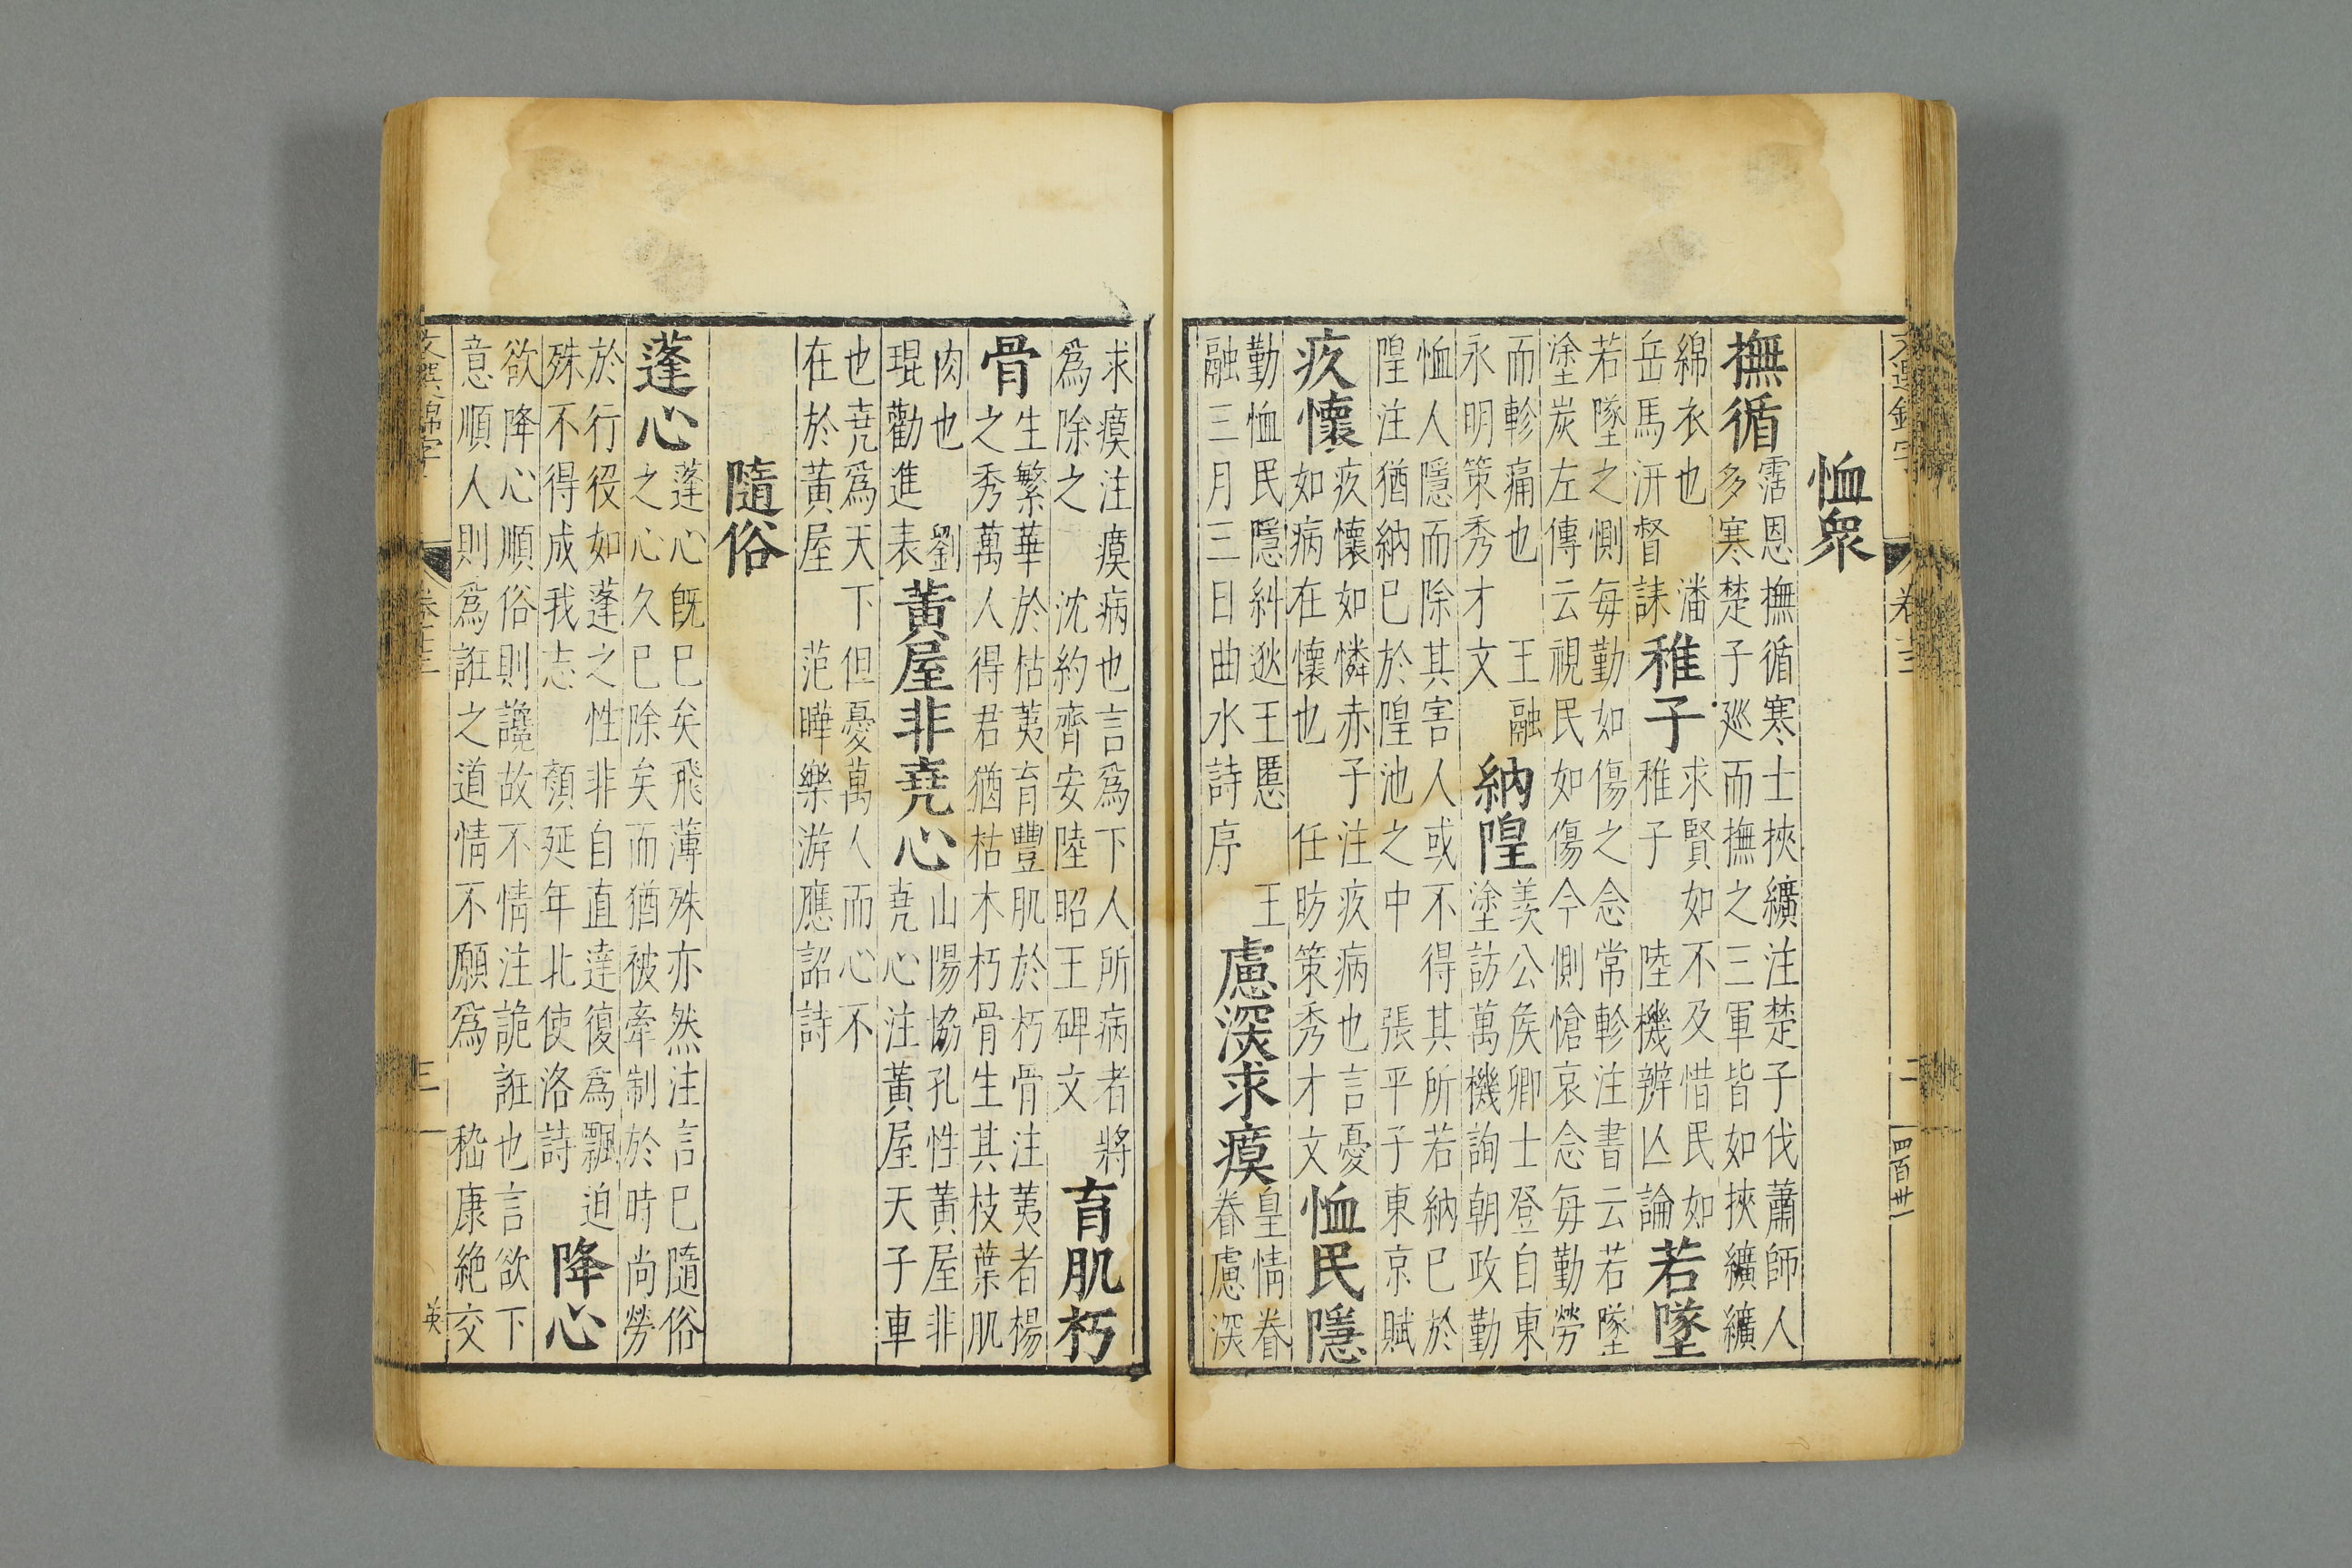 卷十三
四百廿
恤衆
撫循
霑恩撫循寒士挾纊注楚子伐蕭師人
多寒楚子廵而撫之三軍皆如挾纊纊
綿衣也 潘
岳馬汧督誄
稚子
求賢如不及惜民如
稚子 陸機辨亾論
若墜
若墜之惻每勤如傷之念常軫注書云若墜
塗炭左傳云視民如傷今惻愴哀念每勤勞
而軫痛也 王融
永明策秀才文
納隍
羙公侯卿士登自東
塗訪萬機詢朝政勤
恤人隱而除其害人或不得其所若納已於
隍注猶納已於隍池之中 張平子東京賦
疚懷
疚懷如憐赤子注疚病也言憂
如病在懷也 任昉策秀才文
恤民隱
勤恤民隱糾逖王慝 王
融三月三日曲水詩序
慮深求瘼
皇情眷
眷慮深
求瘼注瘼病也言爲下人所病者將
爲除之 沈約齊安陸昭王碑文
育肌朽
骨
生繁華於枯荑育豐肌於朽骨注荑者楊
之秀萬人得君猶枯木朽骨生其枝葉肌
肉也 劉
琨勸進表
黃屋非堯心
山陽協孔性黃屋非
堯心注黃屋天子車
也堯爲天下但憂萬人而心不
在於黃屋 范曄樂游應詔詩
隨俗
蓬心
蓬心既已矣飛薄殊亦然注言已隨俗
之心久已除矣而猶被牽制於時尚勞
於行役如蓬之性非自直達復爲飄迫
殊不得成我志 顏延年北使洛詩
降心
欲降心順俗則讒故不情注詭誑也言欲下
意順人則爲誑之道情不願爲 嵇康絶交
文選錦字
三
英